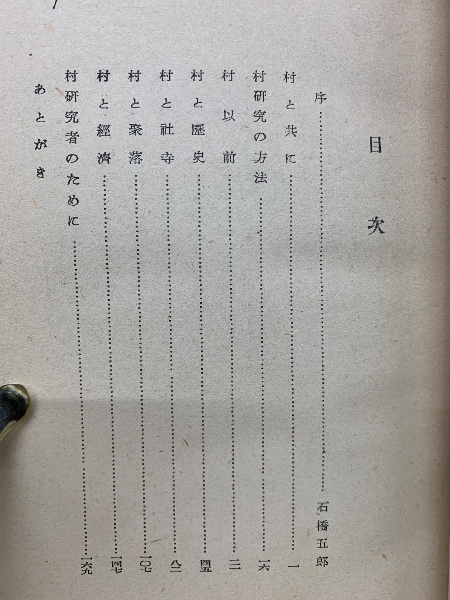 目次
序……石橋五郎
村と共に……一
村研究の方法……一六
村以前……二一
村と歴史……四五
村と社寺……八二
村と聚落……一〇七
村と經濟……一四七
村研究者のために……一六九
あとがき